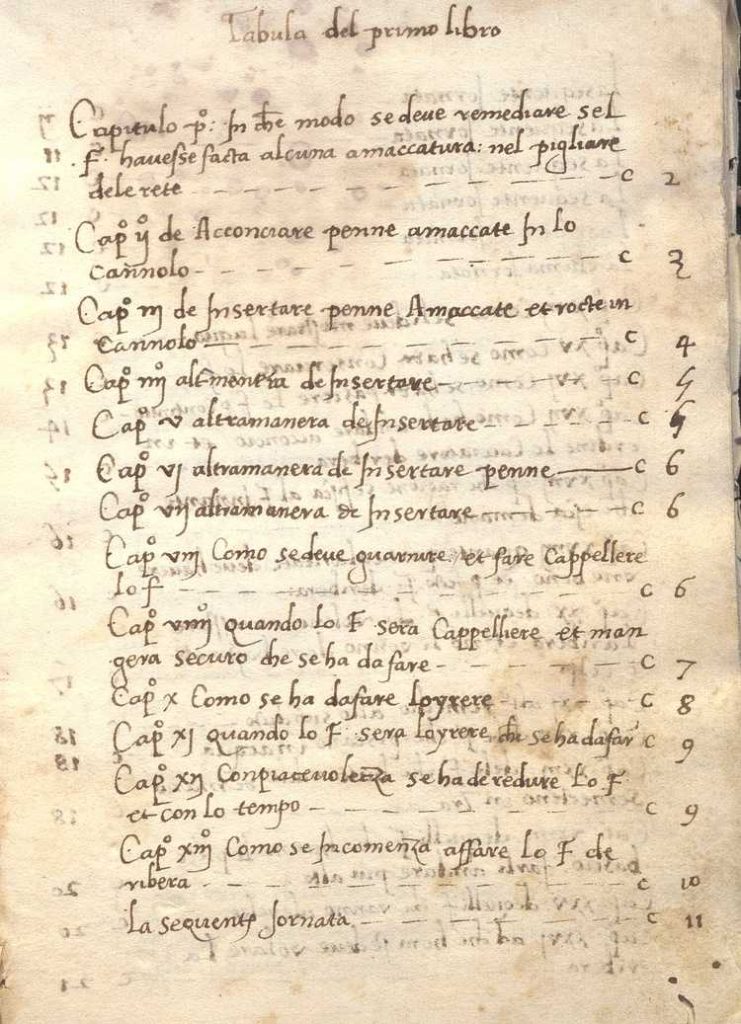 Tabula del primo libro
Capitulo p°: In che modo se deve remediare sel
F. havesse facta alcuna amaccatura: nel pigliare
dele rete c 2
Cap° ij° de Acconciare penne amaccate In lo
Cannolo c 3
Cap° iij de Insertare penne Amaccate et rocte in
Cannolo c 4
Cap° iiij de Insertare c 5
Cap° v altramanera de Insertare c 5
Cap° vj altramanera de Insertare penne c 6
Cap° vij altramanera de Insertare c 6
Cap° viij Como se deve guarnire: et fare Cappellere
lo F c 6
Cap° viiij quando lo F sera Cappelliere et man
gera securo che se ha da fare c 7
Cap° x Como se ha dafare loyrere c 8
Cap° xj quando lo F sera loyrere che se ha dafar c 9
Cap° xij Conpiacevolecza se ha de redure Lo F
et con lo tempo c 9
Cap° xiij Como se Incomenza affare Lo F de
ribera c 10
La sequente Jornata c 11